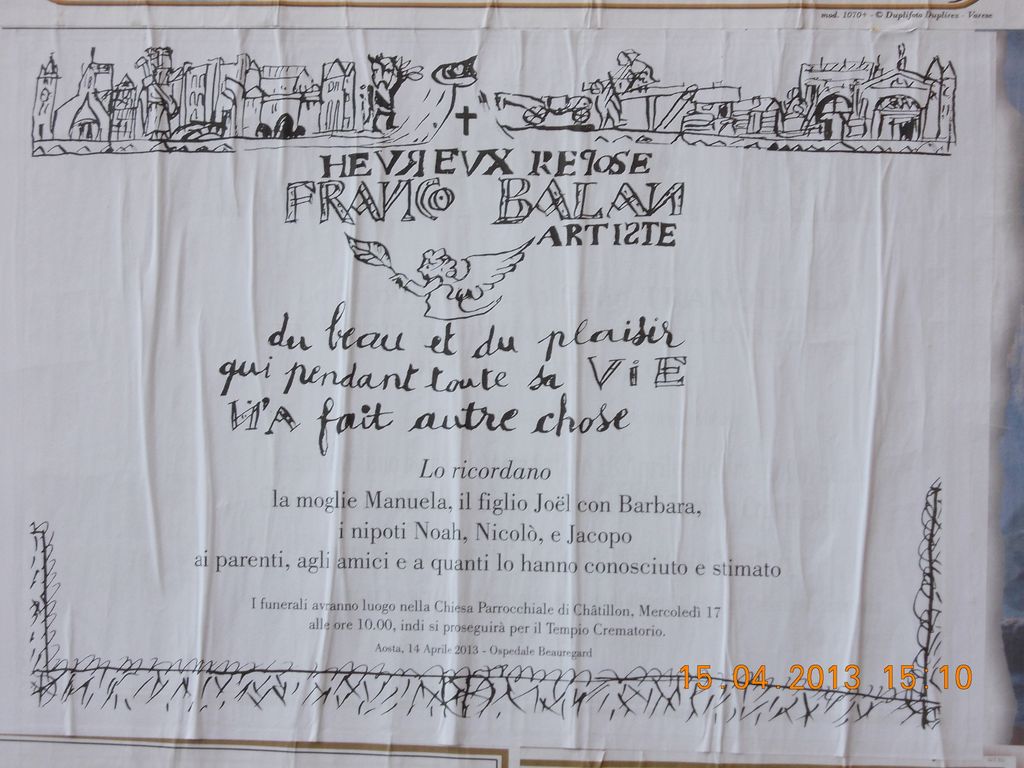 mod. 1070+ - © Duplifoto Duplirex - Varese
HEUREUX REPOSE
FRANCO BALAN
ARTISTE
du beau et du plaisir
qui pendant toute sa ViE
N'A fait autre chose
Lo ricordano
la moglie Manuela, il figlio Joël con Barbara,
i nipoti Noah, Nicolò, e Jacopo
ai parenti, agli amici e a quanti lo hanno conosciuto e stimato
I funerali avranno luogo nella Chiesa Parrocchiale di Châtillon, Mercoledì 17
alle ore 10.00, indi si proseguirà per il Tempio Crematorio.
Aosta, 14 Aprile 2013 - Ospedale Beauregard
15.04.2013 15:10